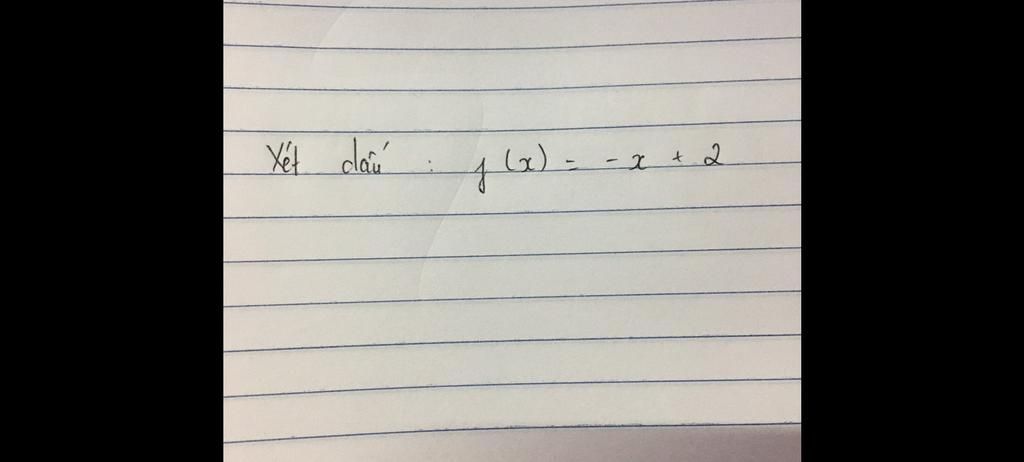 Xét dấu : f(x) = -x + 2